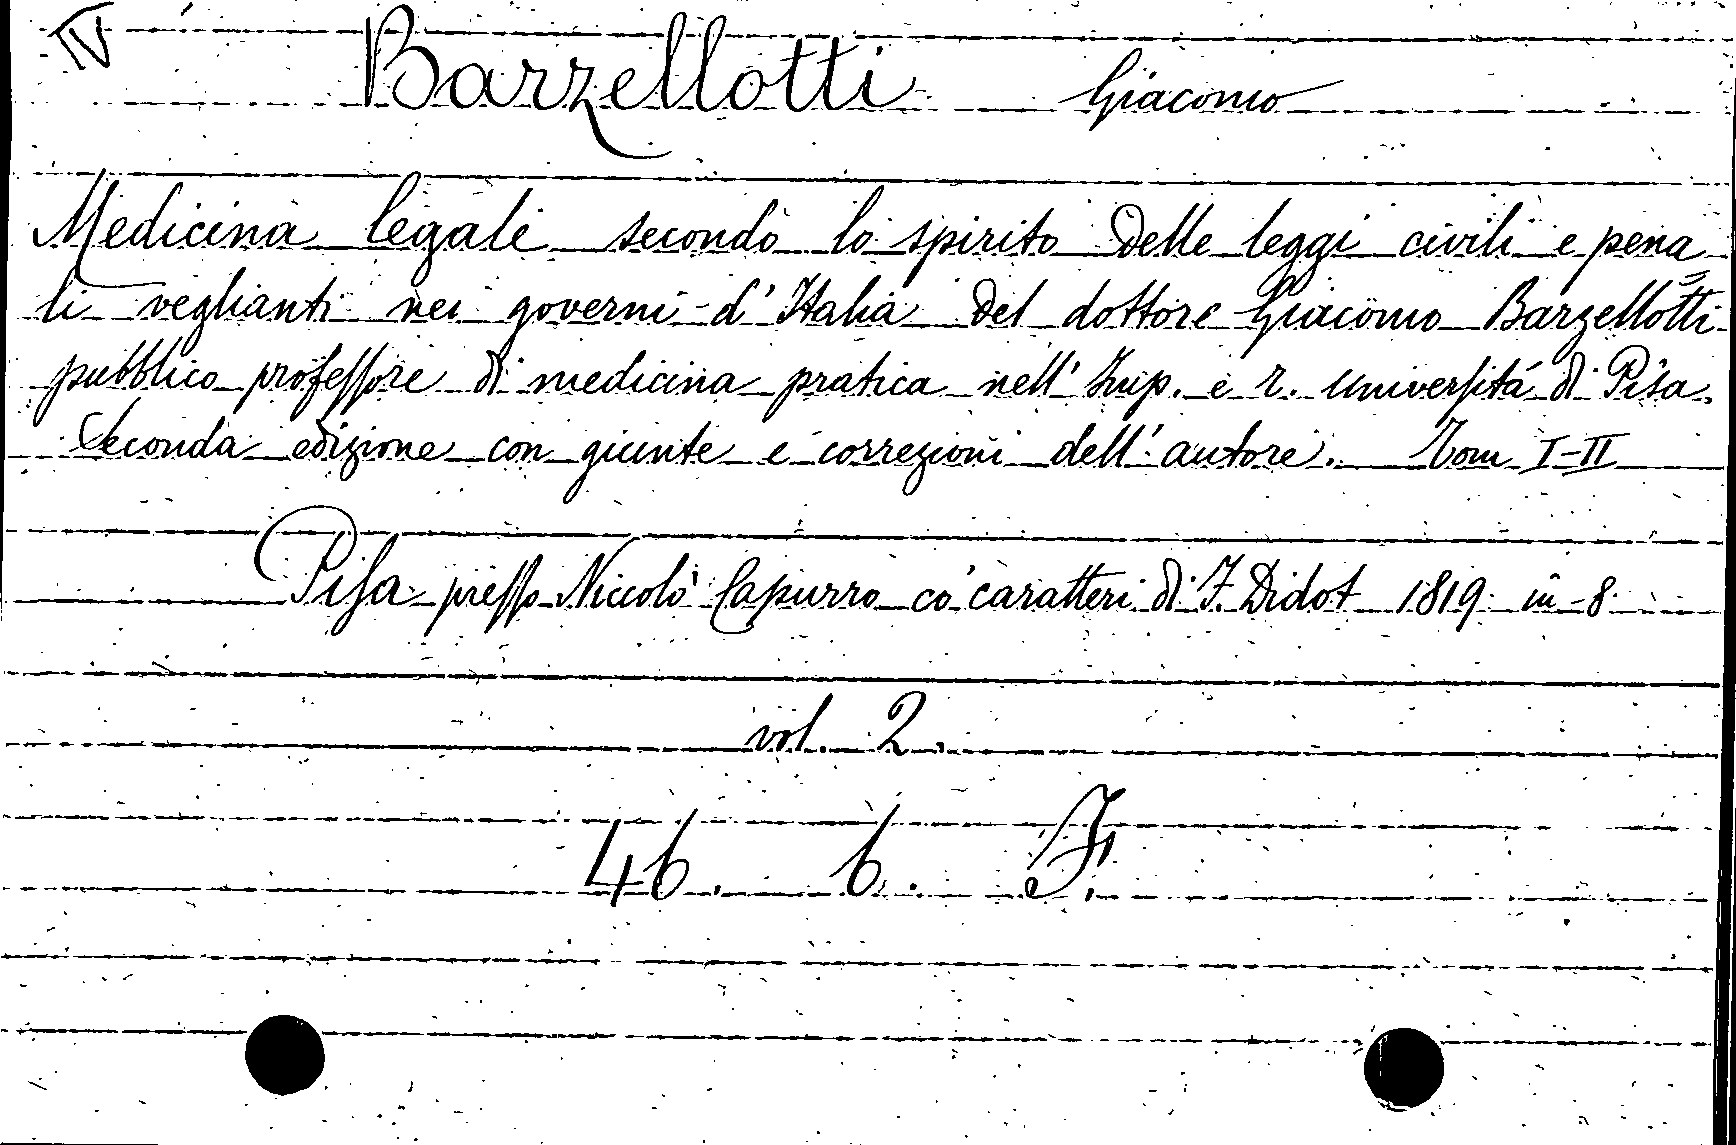 IV
Barzellotti Giacomo
Medicina legale secondo lo spirito delle leggi civili e pena
li veglianti nei governi d'Italia del dottore Giacomo Barzellotti
pubblico professore di medicina pratica nell' Imp. e r. università di Pisa.
Seconda edizione con giunte e correzioni dell' autore. Tom I-II
Pisa presso Niccolò Capurro co' caratteri di F. Didot 1819 in-8
vol. 2.
46. 6. F.